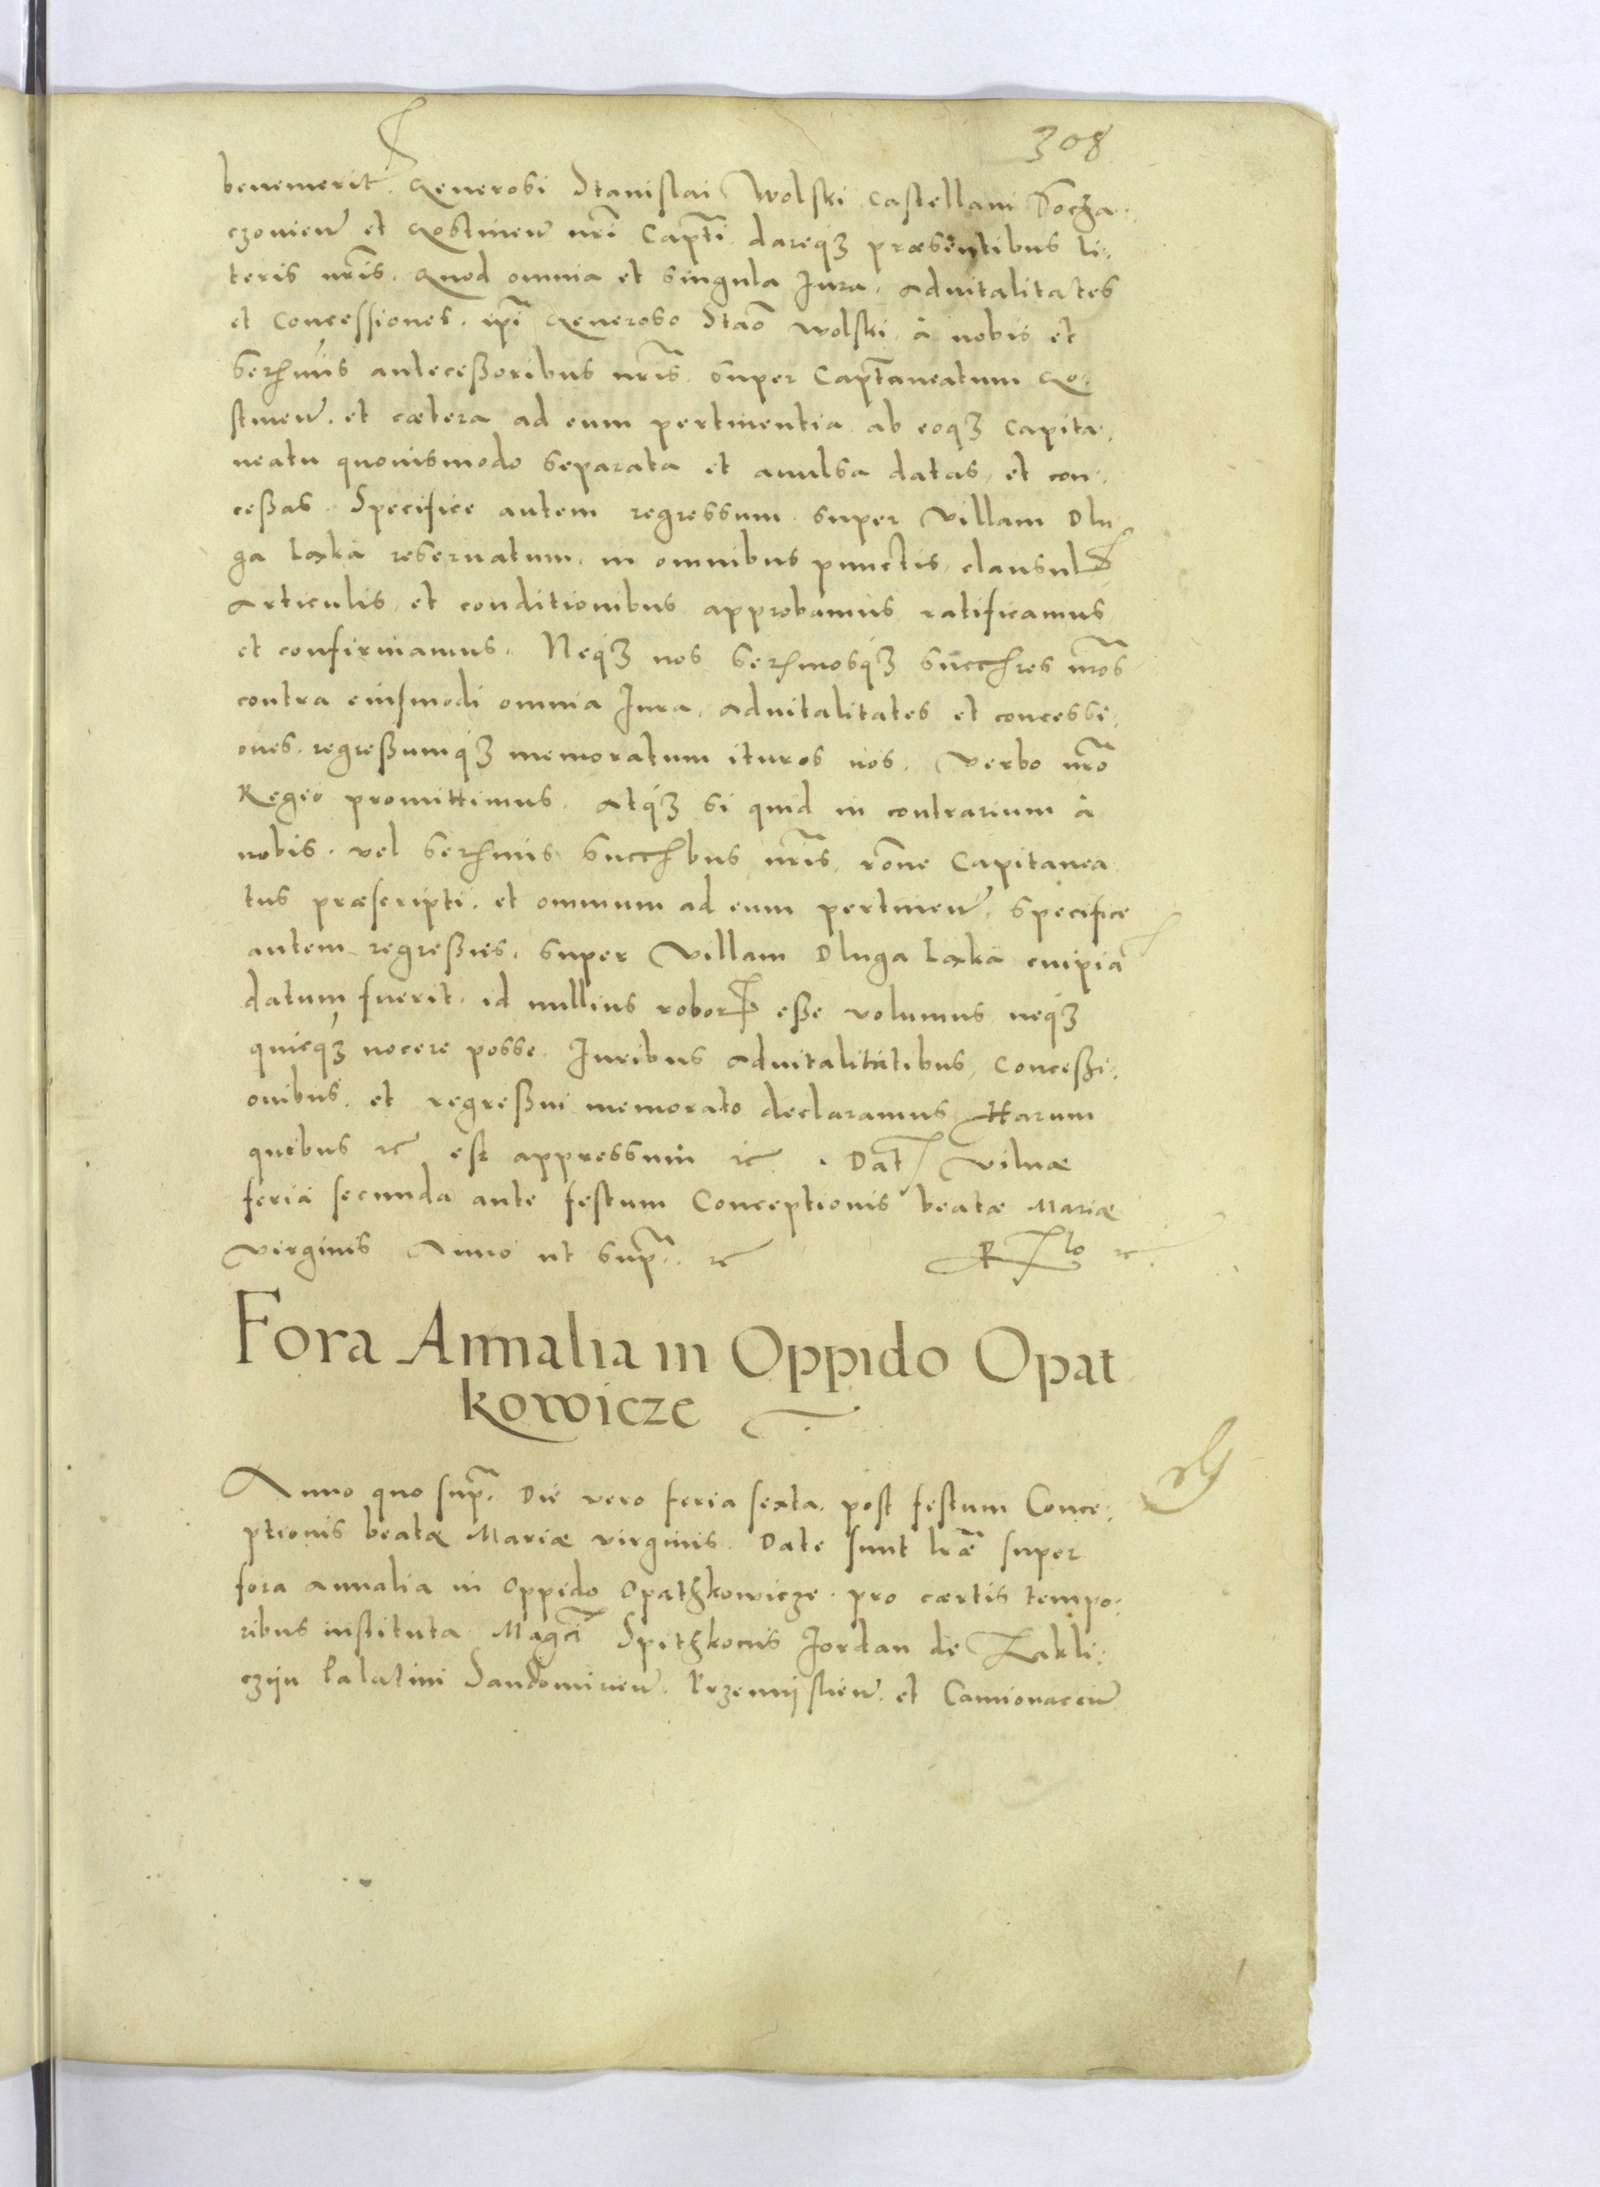 308
benemerit. Generosi Stanislai Wolski Castellani Socha
czovien et Gostinen nri Capti dareq3 præsentibus li
teris nris. Quod omnia et singula Jura. advitalitates
et concessiones. ipi Generoso Stao Wolski à nobis et
Serhmis antecessoribus nris super Captaneatum Go
stinen. et cætera ad eum pertinentia ab eoq3 Capita
neatu quovismodo separata et avulsa datas et con
cessas. Specifice autem regressum super villam Dlu
ga Laka reservatum. in omnibus punctis clausul
Articulis et conditionibus approbamus ratificamus
et confirmamus. Neq3 nos Serhmosq3 succhres nros
contra eiusmodi omnia Jura. advitalitates et concessi
ones. regressumq3 memoratum ituros nos. Verbo nro
Regio promittimus. Atq3 si quid in contrarium à
nobis. vel Serhmis succhbus nris rone Capitanea
tus præscripti. et omnium ad eum pertinen. specifice
autem regressus. super villam Dluga Laka cuipia
datum fuerit. id nullius robor esse volumus neq3
quicq3 nocere posse. Juribus advitalitatibus Concessi
onibus. et regressui memorato declaramus Harum
quibus etc est appressum etc. Dat Vilnæ
feria secunda ante festum Conceptionis beatæ Mariæ
virginis Anno ut supra. etc
Fora Annalia in Oppido Opat
kowicze
Anno quo supra. Die vero feria sexta. post festum Conce
ptionis beatæ Mariæ virginis. Date sunt lræ super
fora annalia in Oppido Opathkowicze. pro cærtis tempo
ribus instituta Magci Spithkocus Jordan de Zakli
czijn Palatini Sandomirien. Przemijslien. et Camionacen